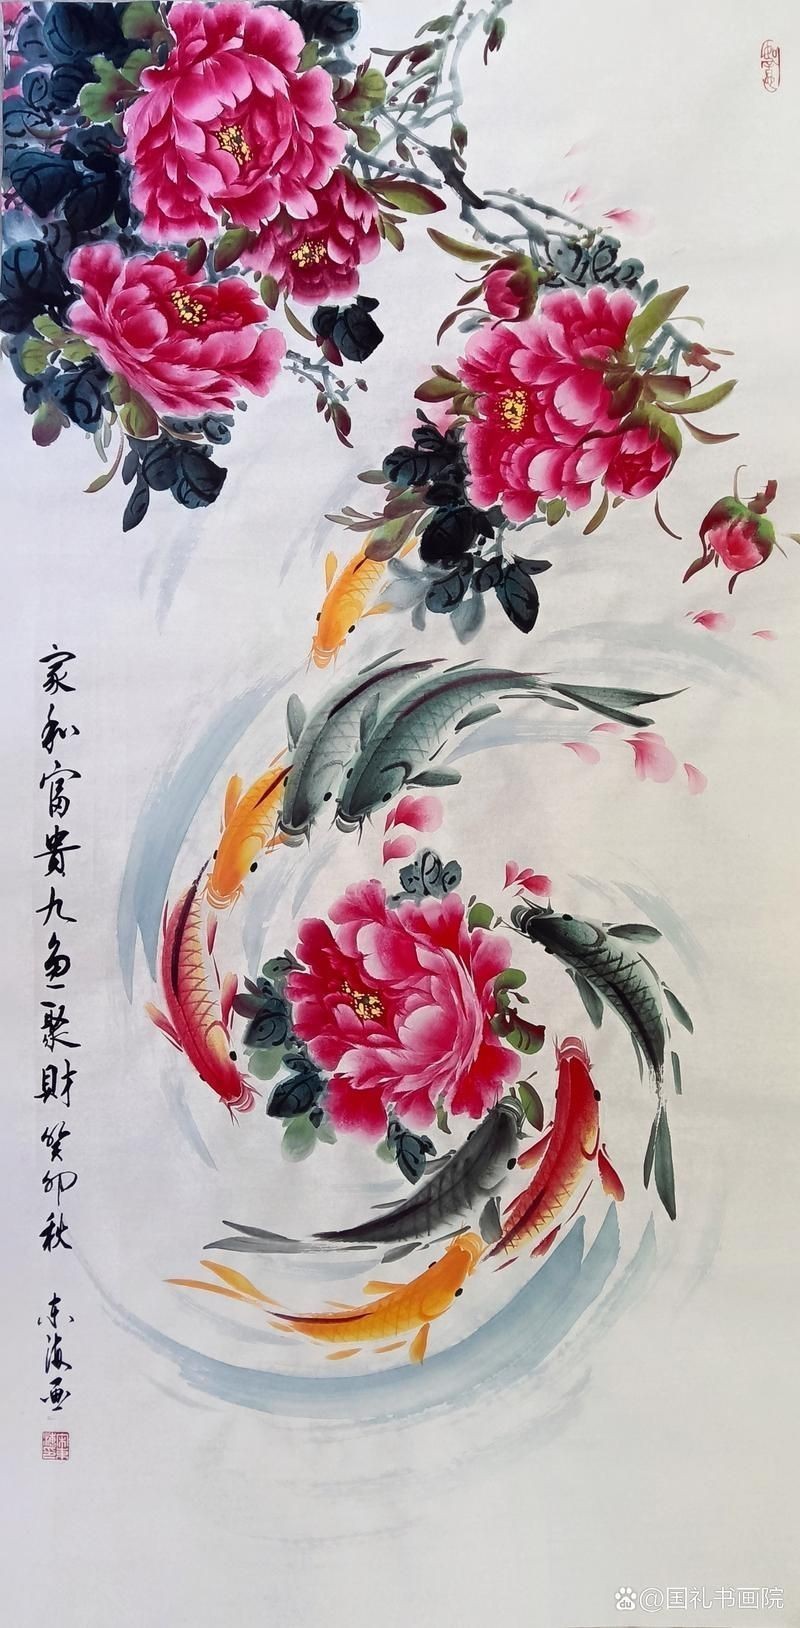 家和富貴九鱼聚財
癸卯秋
东海画
@国礼书画院